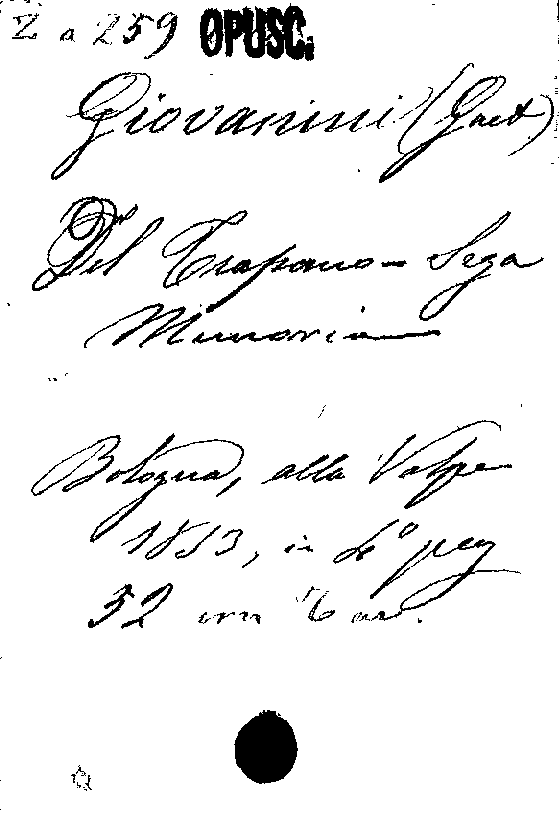 Z a 259 OPUSC.
Giovannini (Gaet.)
Del Trapano-Sega
Memoria
Bologna, alla Volpe
1853, in 4° pag
32 con Tav.